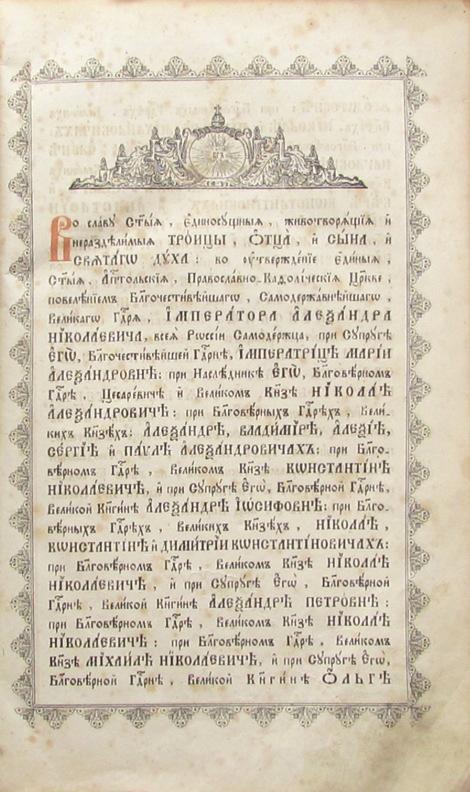 Во славу Ст҃ыѧ, є҆диносꙋщныѧ, животворѧщїѧ и҆
нераздѣ́лимыѧ ТРОИЦЫ, Ѻ҆ТЦА̀, и҆ СЫ́НА, и҆
СВѦТА́ГѠ ДꙊХА: во ᲂу҆твержде́нїе Є҆ди́ныѧ,
Ст҃ыѧ, А҆п҃тольскїѧ, Правосла́вно-Каѳоли́ческїѧ Цр҃кве,
повелѣ́нїемъ Бл҃гочести́вѣйшагѡ, Самодержа́внѣйшагѡ,
Вели́кагѡ Гдⷭ҇рѧ, И҆МПЕРА́ТОРА А҆ЛЕѮА́НДРА
НІКОЛА́ЕВИЧА, всеѧ̀ Рѡссі́и Самоде́ржца, при Сꙋпрꙋ́гѣ
Є҆ГѠ̀, Бл҃гочести́вѣйшей Гдⷭ҇рнѣ, И҆МПЕРАТРИ́ЦѢ МАРІ́И
А҆ЛЕѮА́НДРОВНѢ: при Наслѣ́дникѣ Є҆ГѠ̀, Бл҃говѣ́рномъ
Гдⷭ҇рѣ, Цесаре́вичѣ и҆ Вели́комъ Кн҃зѣ НІКОЛА́Ѣ
А҆ЛЕѮА́НДРОВИЧѢ: при Бл҃говѣ́рныхъ Гдⷭ҇рѣхъ, Вели-
кихъ Кн҃зѣхъ: А҆ЛЕѮА́НДРѢ, ВЛАДИ́МІРѢ, А҆ЛЕѮІ́Ѣ,
СЕ́РГІѢ и҆ ПА́ѴЛѢ А҆ЛЕѮА́НДРОВИЧАХЪ: при Бл҃го-
вѣ́рномъ Гдⷭ҇рѣ, Вели́комъ Кн҃зѣ КѠНСТАНТІ́НѢ
НІКОЛА́ЕВИЧѢ, и҆ при Сꙋпрꙋ́гѣ Є҆гѡ̀, Бл҃говѣ́рной Гдⷭ҇рнѣ,
Вели́кой Кн҃ги́нѣ А҆ЛЕѮА́НДРѢ І҆Ѡ́СИФОВНѢ: при Бл҃го-
вѣ́рныхъ Гдⷭ҇рѣхъ, Вели́кихъ Кн҃зѣхъ, НІКОЛА́Ѣ,
КѠНСТАНТІ́НѢ и҆ ДИМИ́ТРІИ КѠНСТАНТІ́НОВИЧАХЪ:
при Бл҃говѣ́рномъ Гдⷭ҇рѣ, Вели́комъ Кн҃зѣ НІКОЛА́Ѣ
НІКОЛА́ЕВИЧѢ, и҆ при Сꙋпрꙋ́гѣ Є҆гѡ̀, Бл҃говѣ́рной
Гдⷭ҇рнѣ, Вели́кой Кн҃ги́нѣ А҆ЛЕѮА́НДРѢ ПЕТРО́ВНѢ:
при Бл҃говѣ́рномъ Гдⷭ҇рѣ, Вели́комъ Кн҃зѣ НІКОЛА́Ѣ
НІКОЛА́ЕВИЧѢ: при Бл҃говѣ́рномъ Гдⷭ҇рѣ, Вели́комъ
Кн҃зѣ МІХАИ́ЛѢ НІКОЛА́ЕВИЧѢ, и҆ при Сꙋпрꙋ́гѣ Є҆гѡ̀,
Бл҃говѣ́рной Гдⷭ҇рнѣ, Вели́кой Кн҃ги́нѣ Ѻ҆́ЛЬГѢ